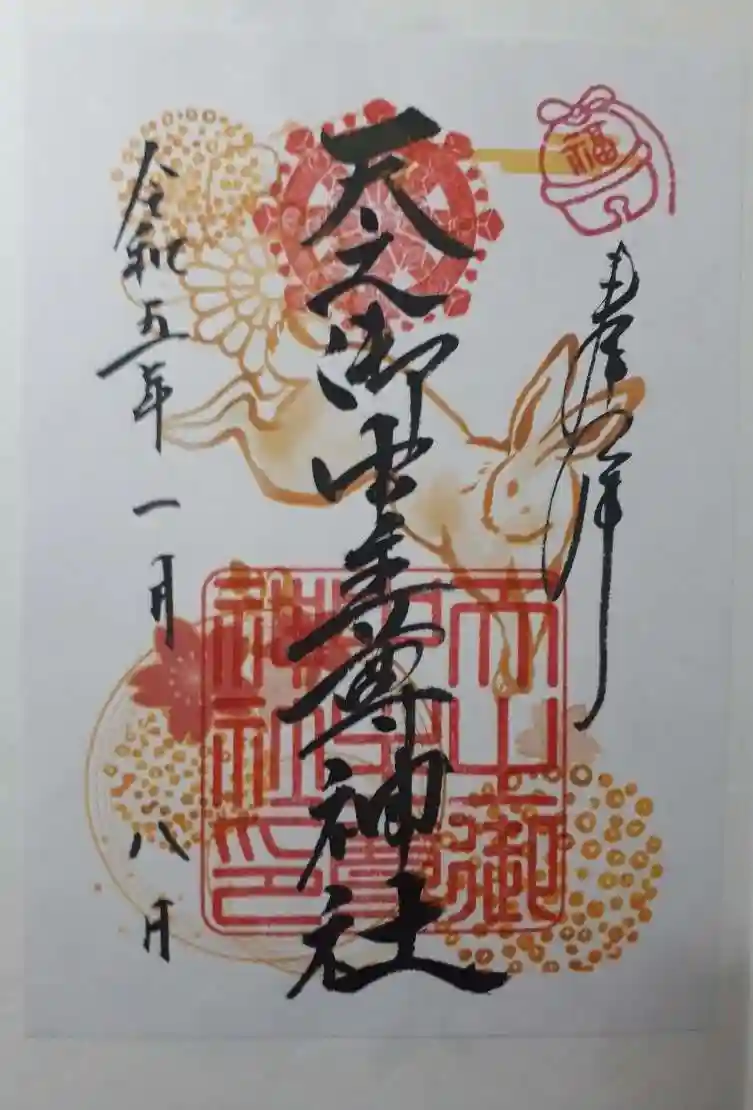 福
奉拝
天之御中主尊神社
令和五年一月八日
天之御
中主尊
神社印